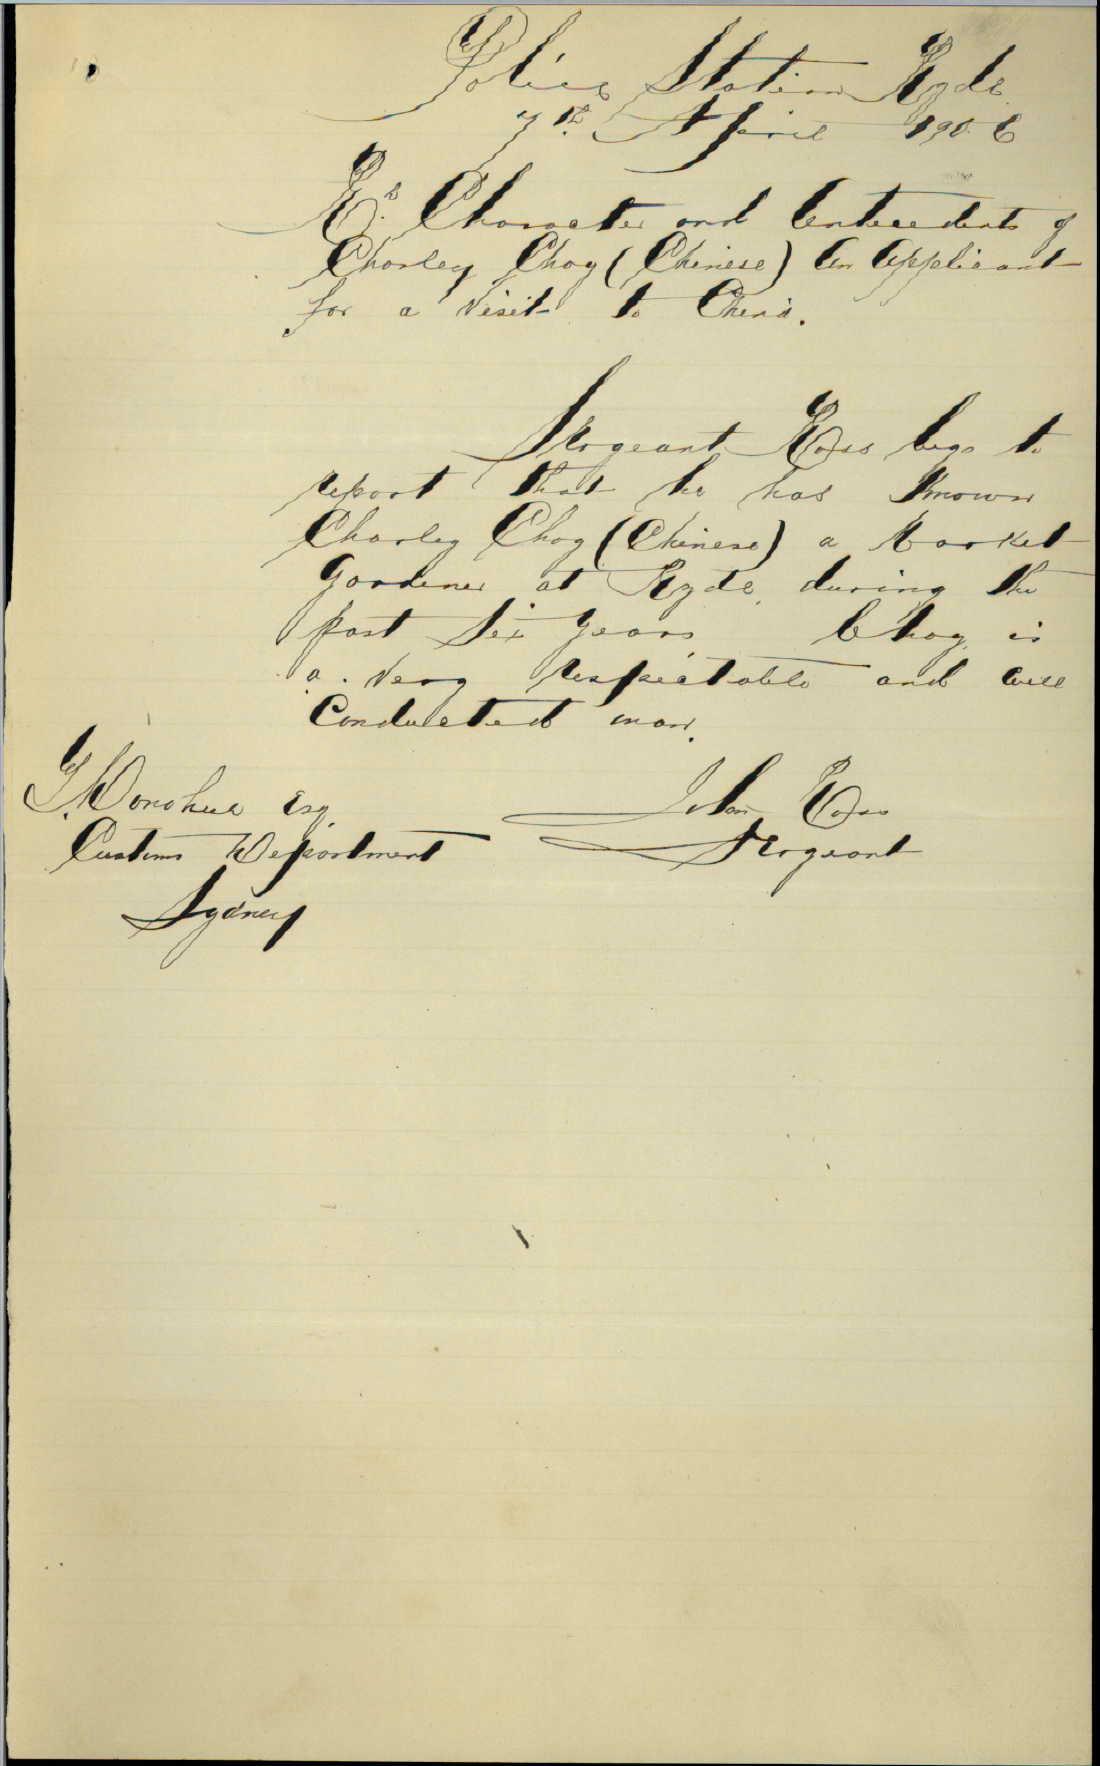 Police Station Ryde
7th April 1906
Re Character and Antecedents of
Charley Choy (Chinese) An Applicant
for a Visit to China.
Sergeant Ross begs to
report that he has Known
Charley Choy (Chinese) a Market
Gardener at Ryde, during the
past Six Years Choy, is
a very respectable and well
Conducted man.
John Ross
Sergeant
Donohue Esq
Customs Department
Sydney